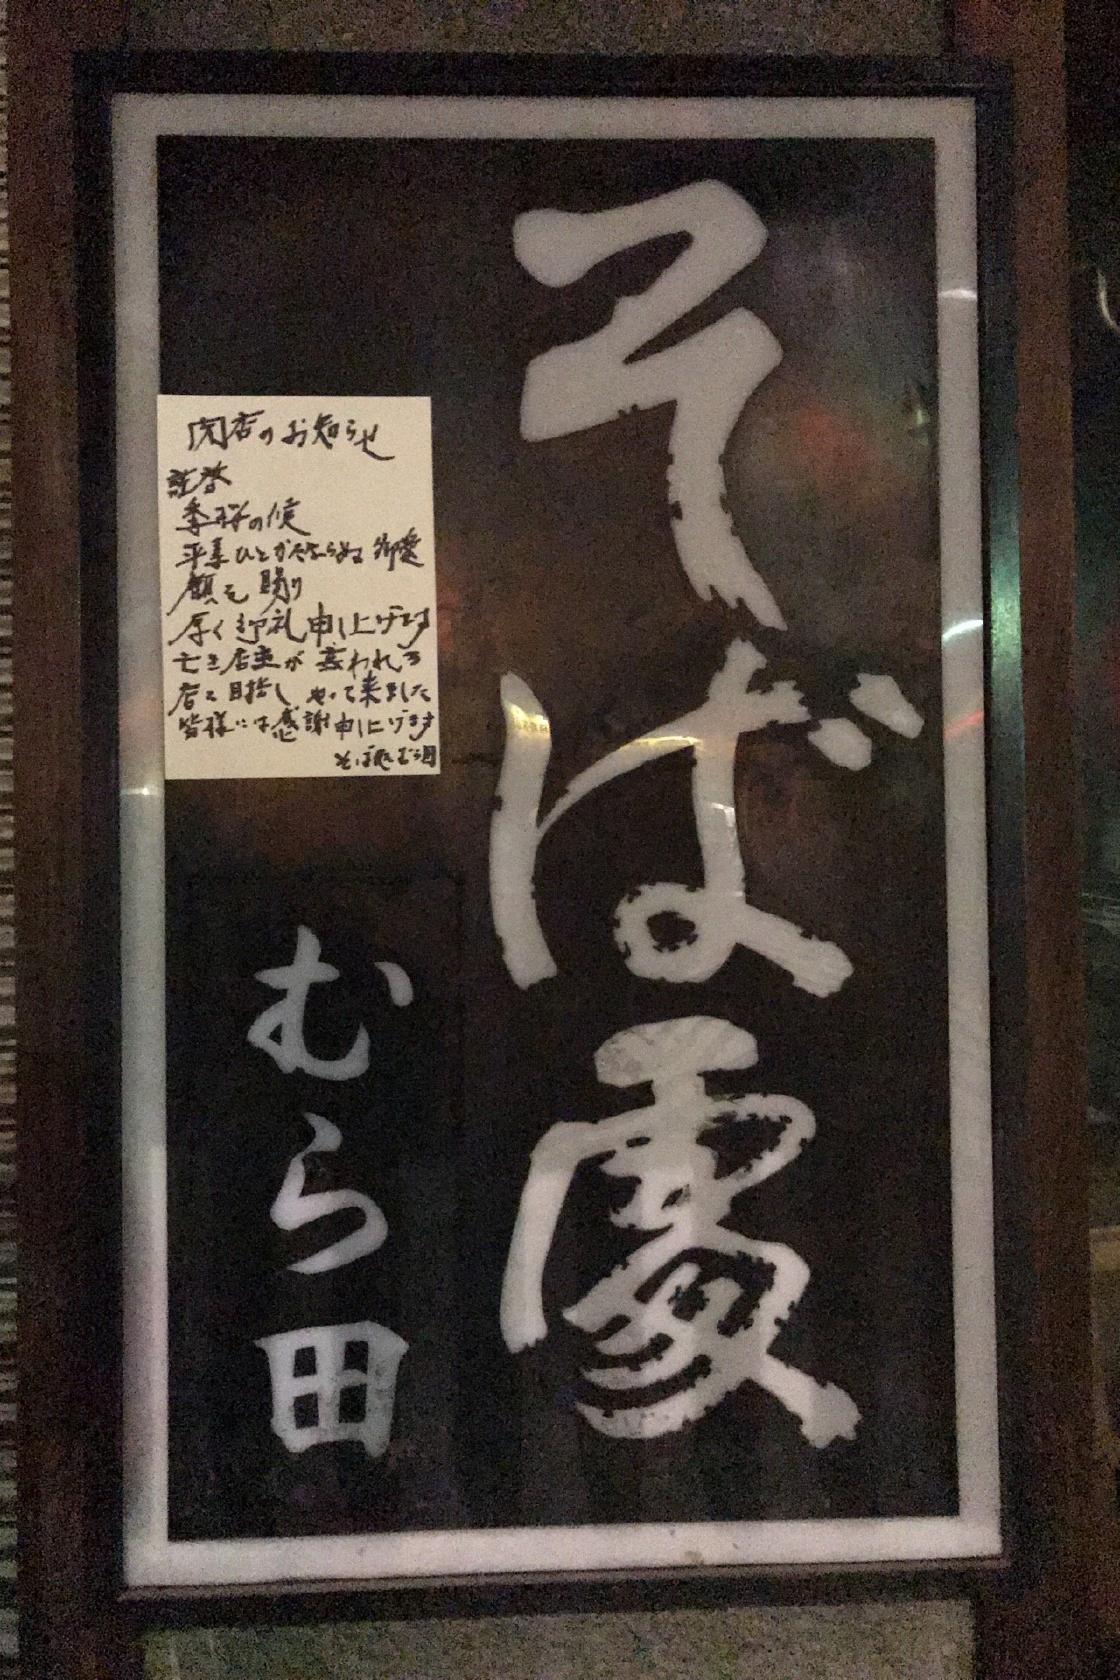 そば處
むら田
閉店のお知らせ
謹啓
季節の候
平素ひとかたならぬ御愛
顧を賜り
厚く御礼申し上げます
亡き店主が 言われる
店を目指し やって来ました
皆様には感謝申し上げます
そば処むら田